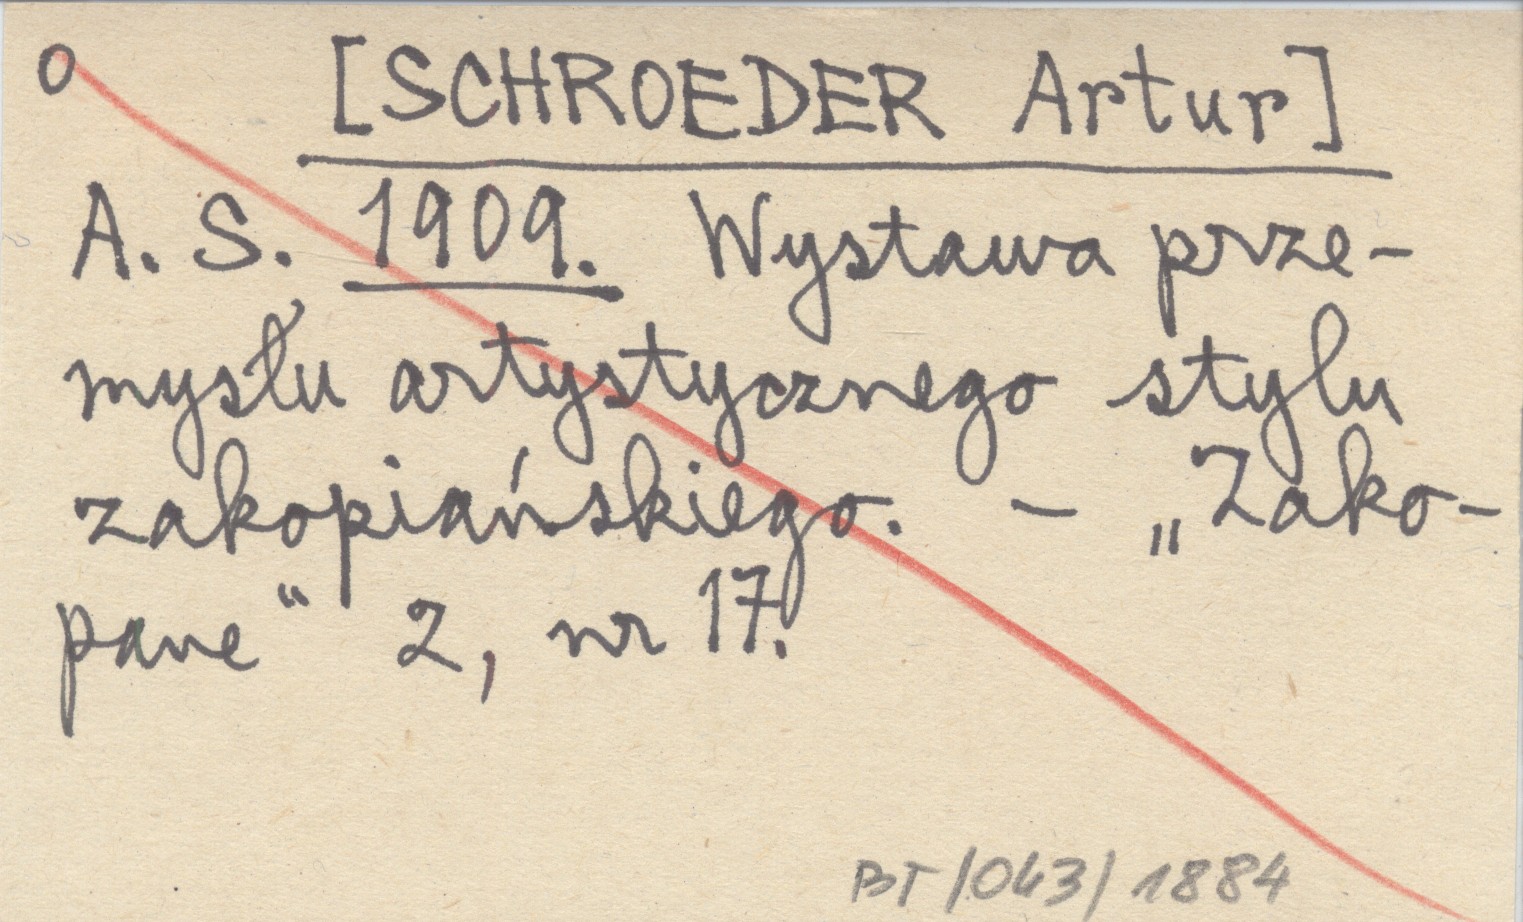 O [SCHROEDER Artur]
A. S. 1909. Wystawa prze-
mysłu artystycznego stylu
zakopiańskiego. – „Zako-
pane“ 2, nr 17.
BT/043/1884